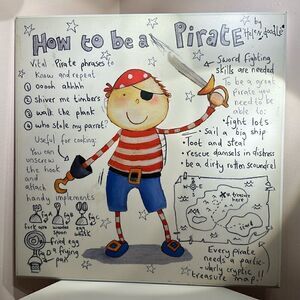 How to be a Pirate
by
Helen Poole
Vital Pirate phrases to
know and repeat
1 ooooh ahhhh
2 shiver me timbers
3 walk the plank
4 who stole my parrot?
Useful for cooking:
You can
unscrew
the hook
and
attach
handy implements
fig 1
fig 2
fig 3
fork arm
wooden
spoon
egg
whisk
fried egg
frying
pan
Sword fighting
skills are needed
To be a great
pirate you
need to be
able to:
• fight lots
• sail a big ship
• loot and steal
• rescue damsels in distress
• be a dirty rotten scoundrel
X treasure
here!
Every pirate
needs a partic-
ularly cryptic
treasure map!!